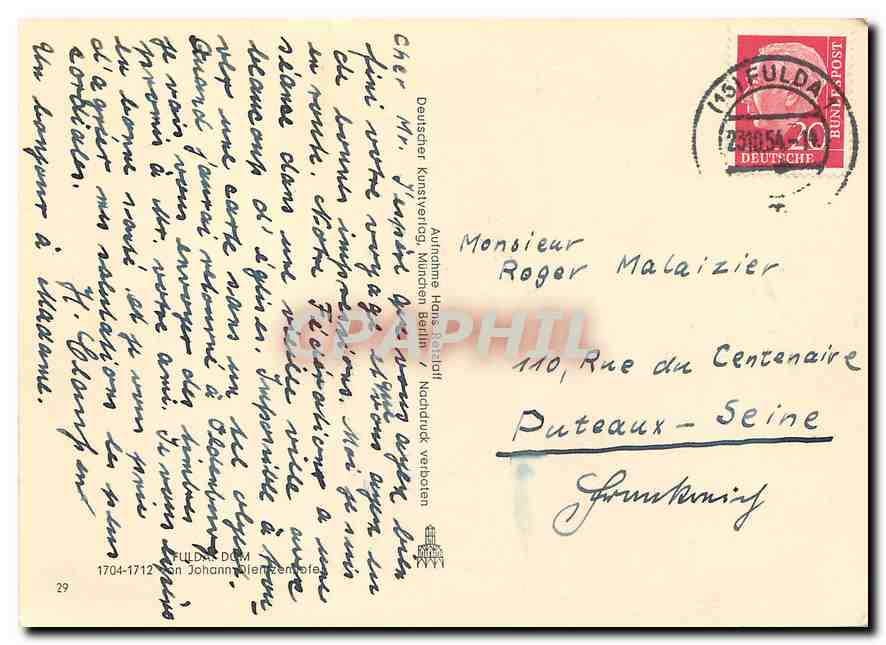 Cher Mr. J'espère que vous ayez bien
fini votre voyage et que vous ayez eu
de bonnes impressions. Moi je suis
en route. Notre Fédération a une
séance dans une vieille ville avec
beaucoup d'églises. Impossible à trou-
ver une carte sans un tel objet.
Quand j'aurai retourné à Oldenburg
je vais vous envoyer des timbres
promis à Mr. votre ami. Je vous
en bonne santé et je vous prie
d'agréer mes salutations les plus
cordiales.
Un bonjour à Madame.
Aufnahme Hans Retzlaff
Deutscher Kunstverlag, München Berlin / Nachdruck verboten
FULDA, DOM
1704-1712 von Johann Dientzenhofer
29
(16) FULDA
23.10.54.-1
20
DEUTSCHE
BUNDESPOST
Monsieur
Roger Malaizier
110, Rue du Centenaire
Puteaux - Seine
Frankreich
CPAPHIL